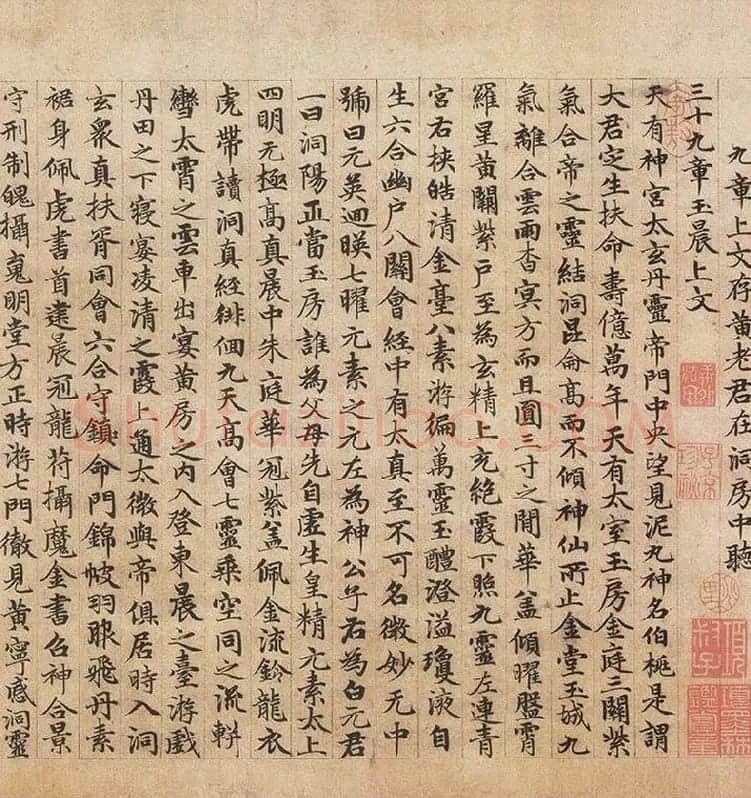 九章上文存黄老君在洞房中聽
三十九章玉晨上文
天有神宮太玄丹靈帝門中央望見泥丸神名伯桃是謂
大君定生扶命壽億萬年天有太室玉房金庭三關紫
氣合帝之靈結洞昆侖高而不傾神仙所止金堂玉城九
氣離合雲雨杳冥方而且圓三寸之間華盖傾曜盤霄
羅呈黄闕紫户至為玄精上充絶霞下照九靈左連青
宮右挾皓清金臺八素游徧萬靈玉醴澄溢瓊液自
生六合幽户八關會經中有太真至不可名微妙无中
號曰元英迴暎七曜元素之元左為神公子右為白元君
一曰洞陽正當玉房誰為父母先自虛生皇精元素太上
四明元極高真晨中朱庭華冠紫盖佩金流鈴龍衣
虎帶讀洞真經徘佪九天高會七靈乘空同之流輧
轡太霄之雲車出宴黄房之内入登東晨之臺游戲
丹田之下寢宴凌清之霞上通太微與帝俱居時入洞
玄衆真扶胥同會六合守鎮命門錦帔羽服飛丹素
裙身佩虎書首建晨冠龍符攝魔金書召神合景
守刑制魄攝嵬明堂方正時游七門徹見黄寧感洞靈